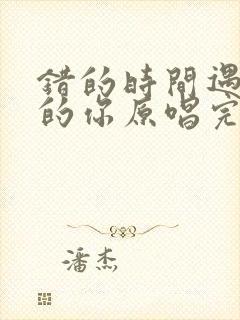 錯的時間遇
的你原唱完
潘杰